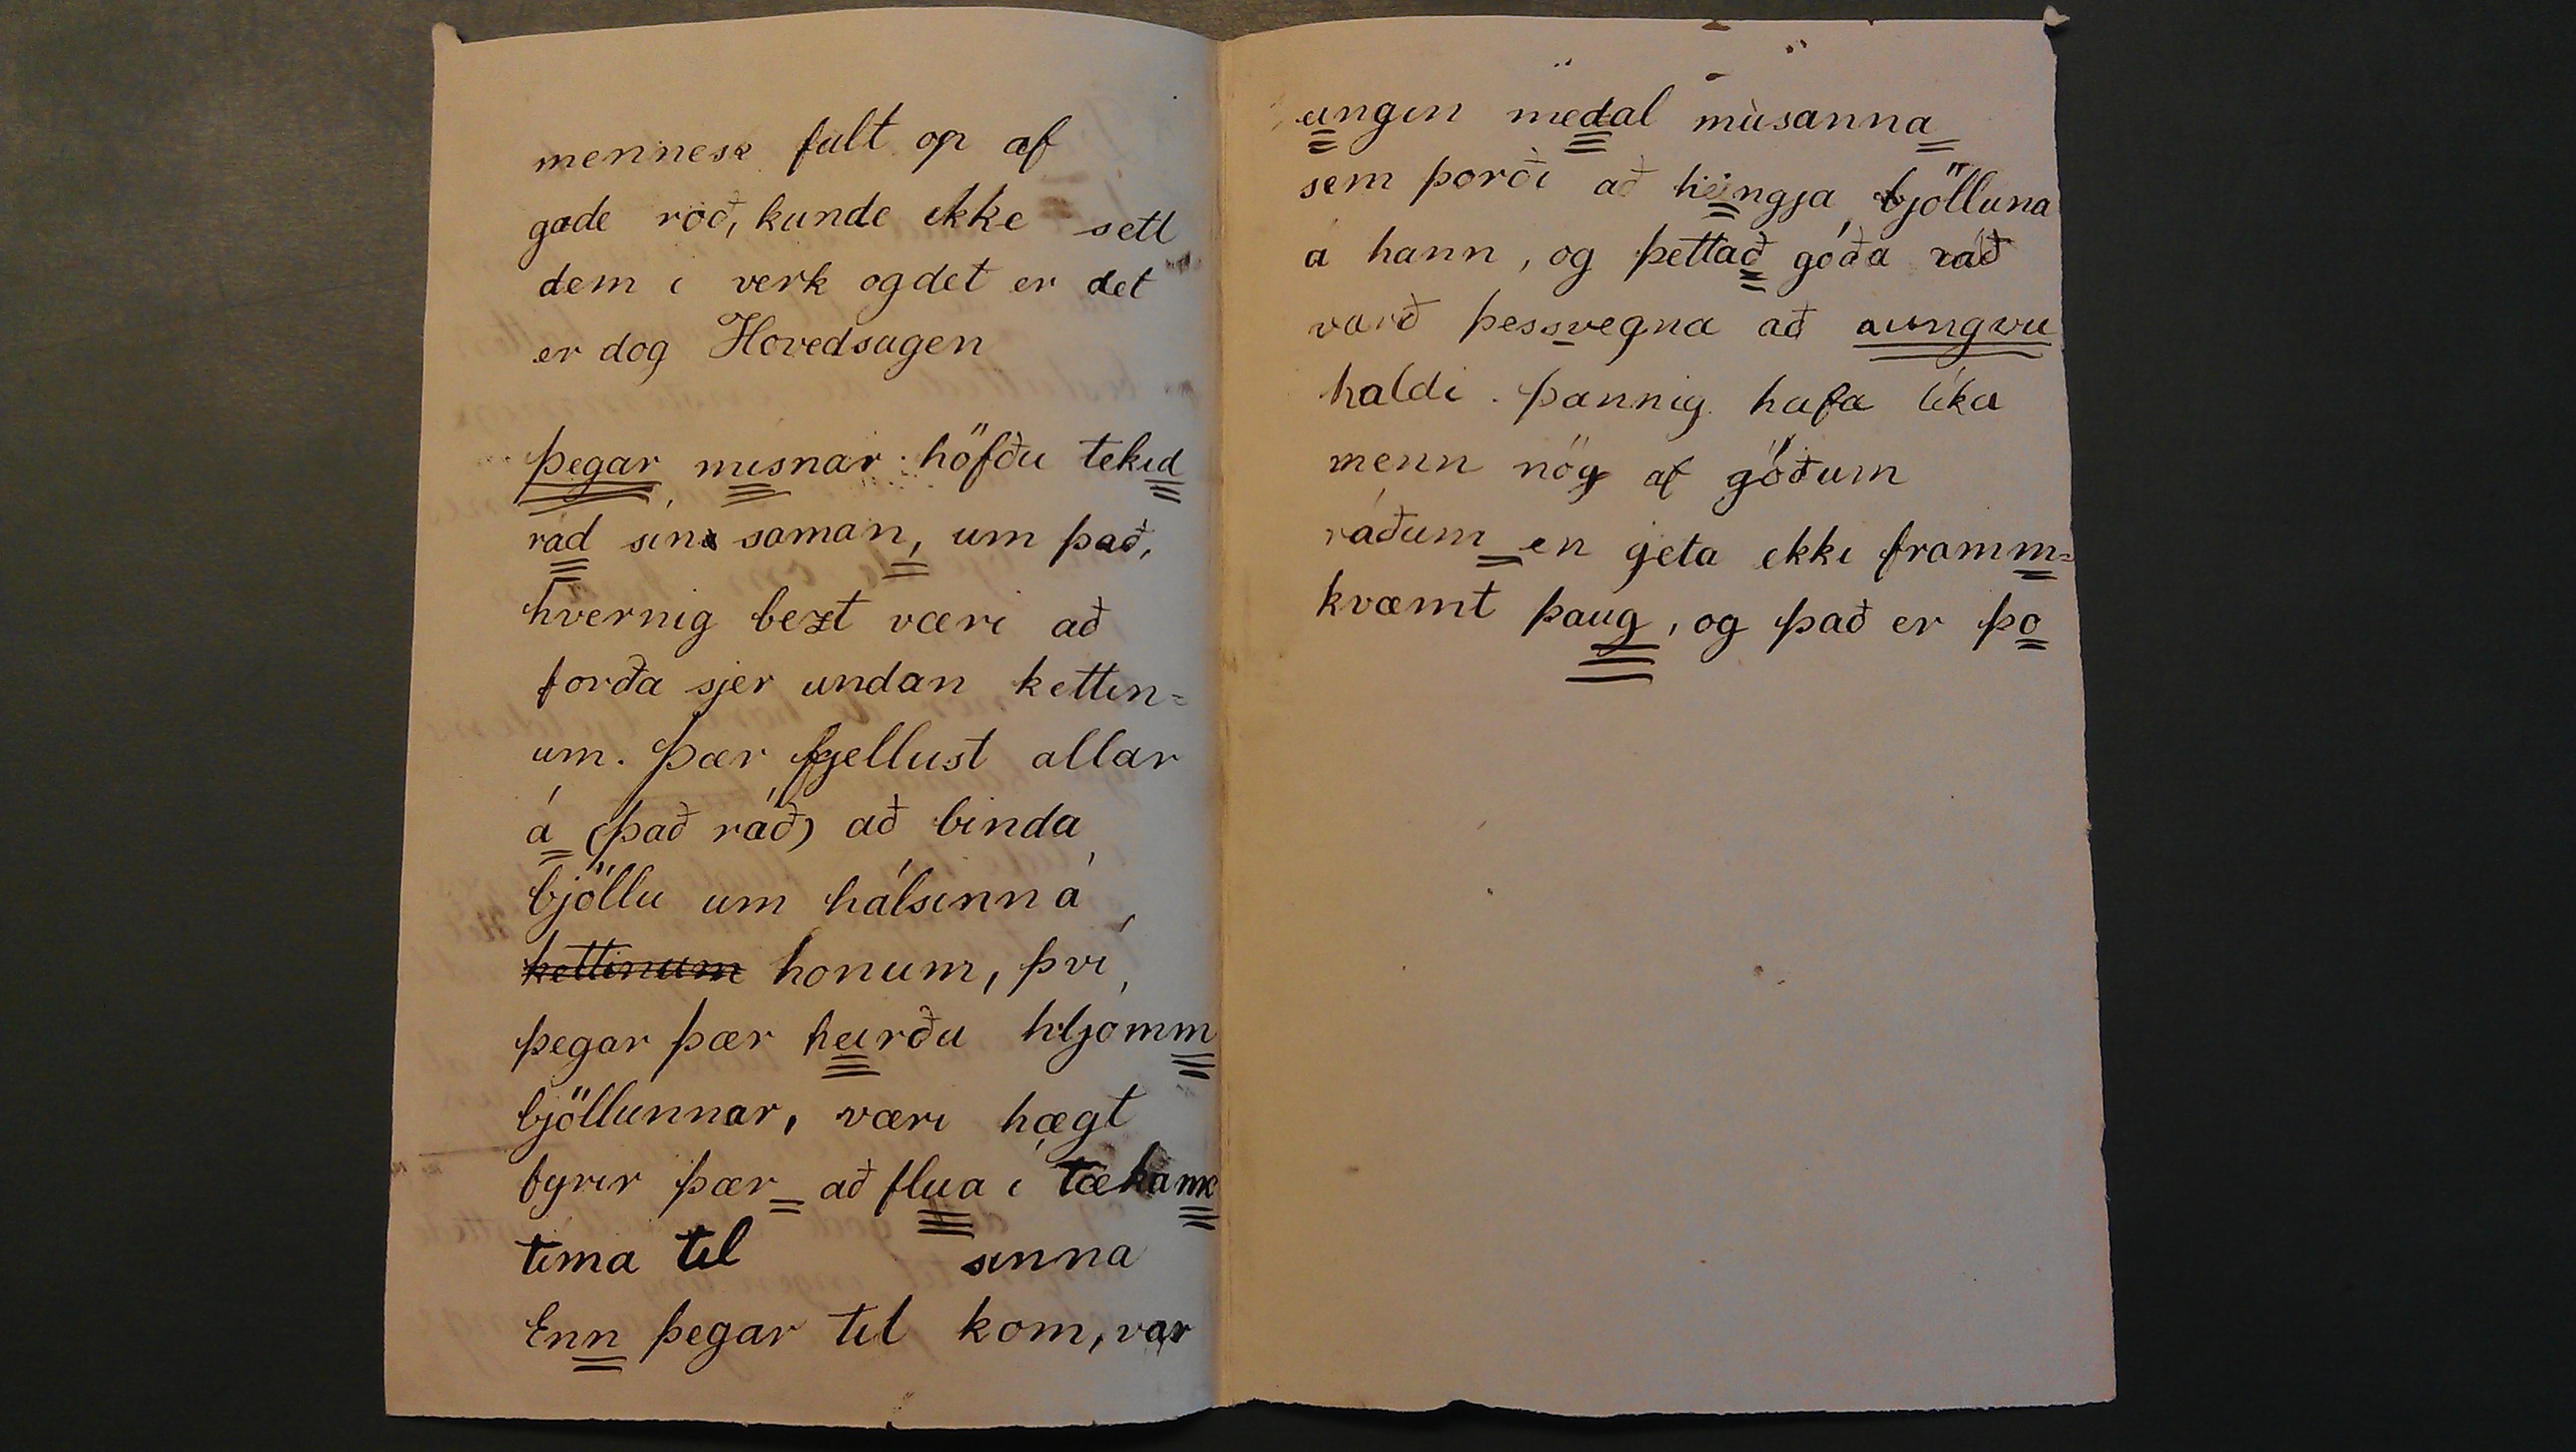 mennesk fult op af
gode roð, kunde ikke sett
dem i verk og det er det
er dog Hovedsagen
þegar músnar höfðu tekid
rád sín saman, um það,
hvernig bezt væri að
forða sjer undan kettin=
um. Þær fjellust allar
á (það ráð) að binda
bjöllu um hálsinn á
kettinum honum, því,
þegar þær heirðu hljómm
bjöllunnar, væri hægt
fyrir þær að flúa í
tíma til sinna
Enn þegar til kom, var
eingin medal músanna
sem þorði að heingja bjölluna
á hann, og þettað góða ráð
varð þessvegna að aungvu
haldi. Þannig hafa líka
menn nóg af góðum
ráðum en geta ekki framm=
kvæmt þaug, og það er þo